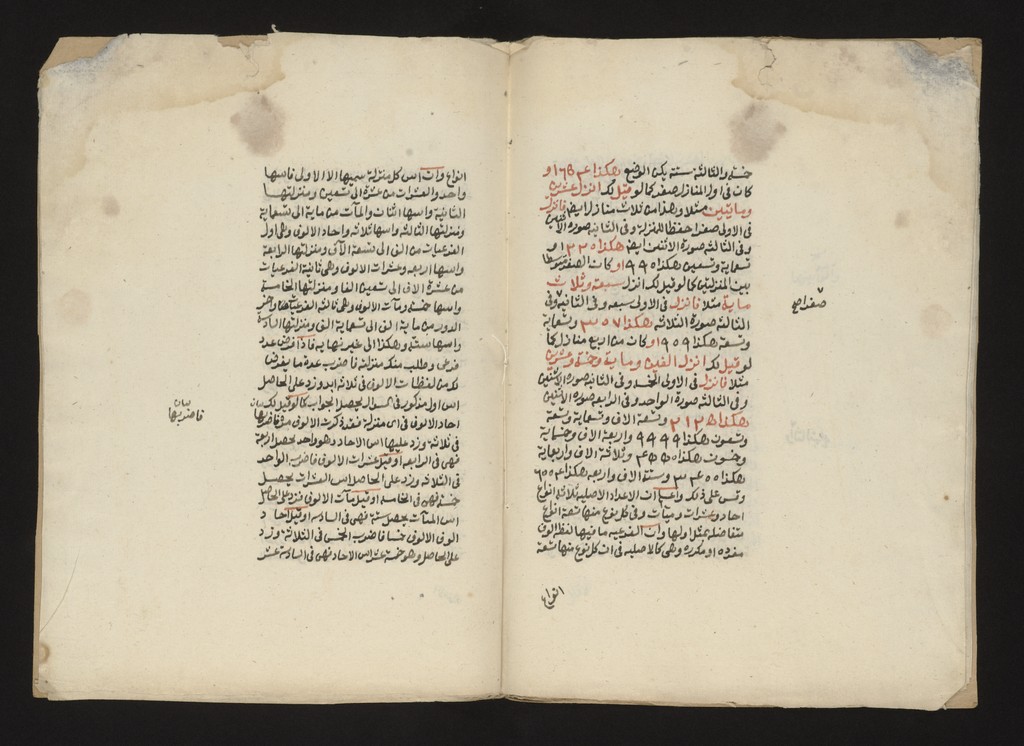 خمسة والثالثة ستة يكن الوضع هكذا
كان فى اول المنازل صفر كما لو قيل لك انزل عشرين
ومايتين مثلا وهذا من ثلاث منازل ايضا فانزل
فى الاولى صفرا حفظا للمنزلة وفى الثانية صورة الاثنين
وفى الثالثة صورة الاثنين ايضا هكذا ٢٢٠ او
تسعماية وتسعين هكذا ٩٩٠ او كان الصفر متوسطا
بين المنزلتين كما لو قيل لك انزل سبعة وثلاث
ماية مثلا فانزل فى الاولى سبعه وفى الثانية
الثالثة صورة الثلاثة هكذا ٣٠٧ وتسعماية
وتسعة هكذا ٩٠٩ او كان من اربع منازل كما
لو قيل لك انزل الفين وماية وخمسة وعشرين
مثلا فانزل فى الاولى الخمسة وفى الثانية صورة الاثنين
وفى الثالثة صورة الواحد وفى الرابعة صورة الاثنين
هكذا ٢١٢٥ وتسعة الاف وتسعماية وتسعة
وتسعون هكذا ٩٩٩٩ واربعة الاف وخمسماية
وخمسون هكذا وثلاثة الاف واربعماية
هكذا وستة الاف واربعه هكذا
وقس على ذلك واعلم ان الاعداد الاصلية ثلاثة انواع
احاد وعشرات ومئات وفى كل نوع منها تسعة انواع
متفاضلة بمثل اولها وان الفرعية ما فيها لفظ الوف
مفرده او مكرره وهى كالاصلية فى ان كل نوع منها تسعة
انواع
انواع وان اس كل منزلة سميها الا الاولى فاسها
واحد والعشرات من عشرة الى تسعين ومنزلتها
الثانية واسها اثنان والمآت من ماية الى تسعماية
ومنزلتها الثالثة واسها ثلاثه واحاد الالوف وهى اول
الفرعيات من الف الى تسعة الاف ومنزلتها الرابعة
واسها اربعه وعشرات الالوف وهى ثانية الفرعيات
من عشرة الاف الى تسعين الفا ومنزلتها الخامسة
واسها خمسة ومآت الالوف وهى ثالثة الفرعيات
الدور من ماية الف الى تسعماية الف ومنزلتها السادسة
واسها سته وهكذا الى غير نهاية فاذا فرض عدد
فرعى وطلب منك منزلته فاضرب عدة ما يفرض
لك من لفظات الالوف فى ثلاثة ابدا وزد على الحاصل
اس اول مذكور فى السوال يحصل الجواب كما لو قيل لك
احاد الالوف فى اى منزلة فعدة كرت الالوف مرة فاضربها
فى ثلاثة وزد عليها اس الاحاد وهو واحد يحصل اربعة
فهى فى الرابعه او قيل عشرات الالوف فاضرب الواحد
فى الثلاثة وزد على الحاصل اس العشرات يحصل
خمسة فهى فى الخامسه او قيل مآت الالوف فزد على الحاصل
اس المئآت يحصل ستة فهى فى السادسه او قيل احاد
الوف الالوف خمسا فاضرب الخمس فى الثلاثة وزد
على الحاصل وهو خمسة عشر اس الاحاد فهى فى السادسة عشر
بيان
فاضربها